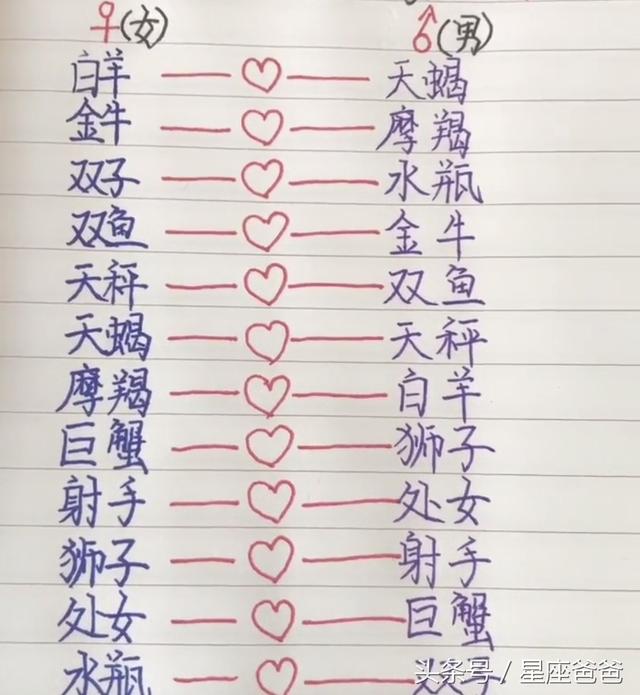 ♀(女) ♂(男)
白羊 天蝎
金牛 摩羯
双子 水瓶
双鱼 金牛
天秤 双鱼
天蝎 天秤
摩羯 白羊
巨蟹 狮子
射手 处女
狮子 射手
处女 巨蟹
水瓶 双子
头条号 / 星座爸爸